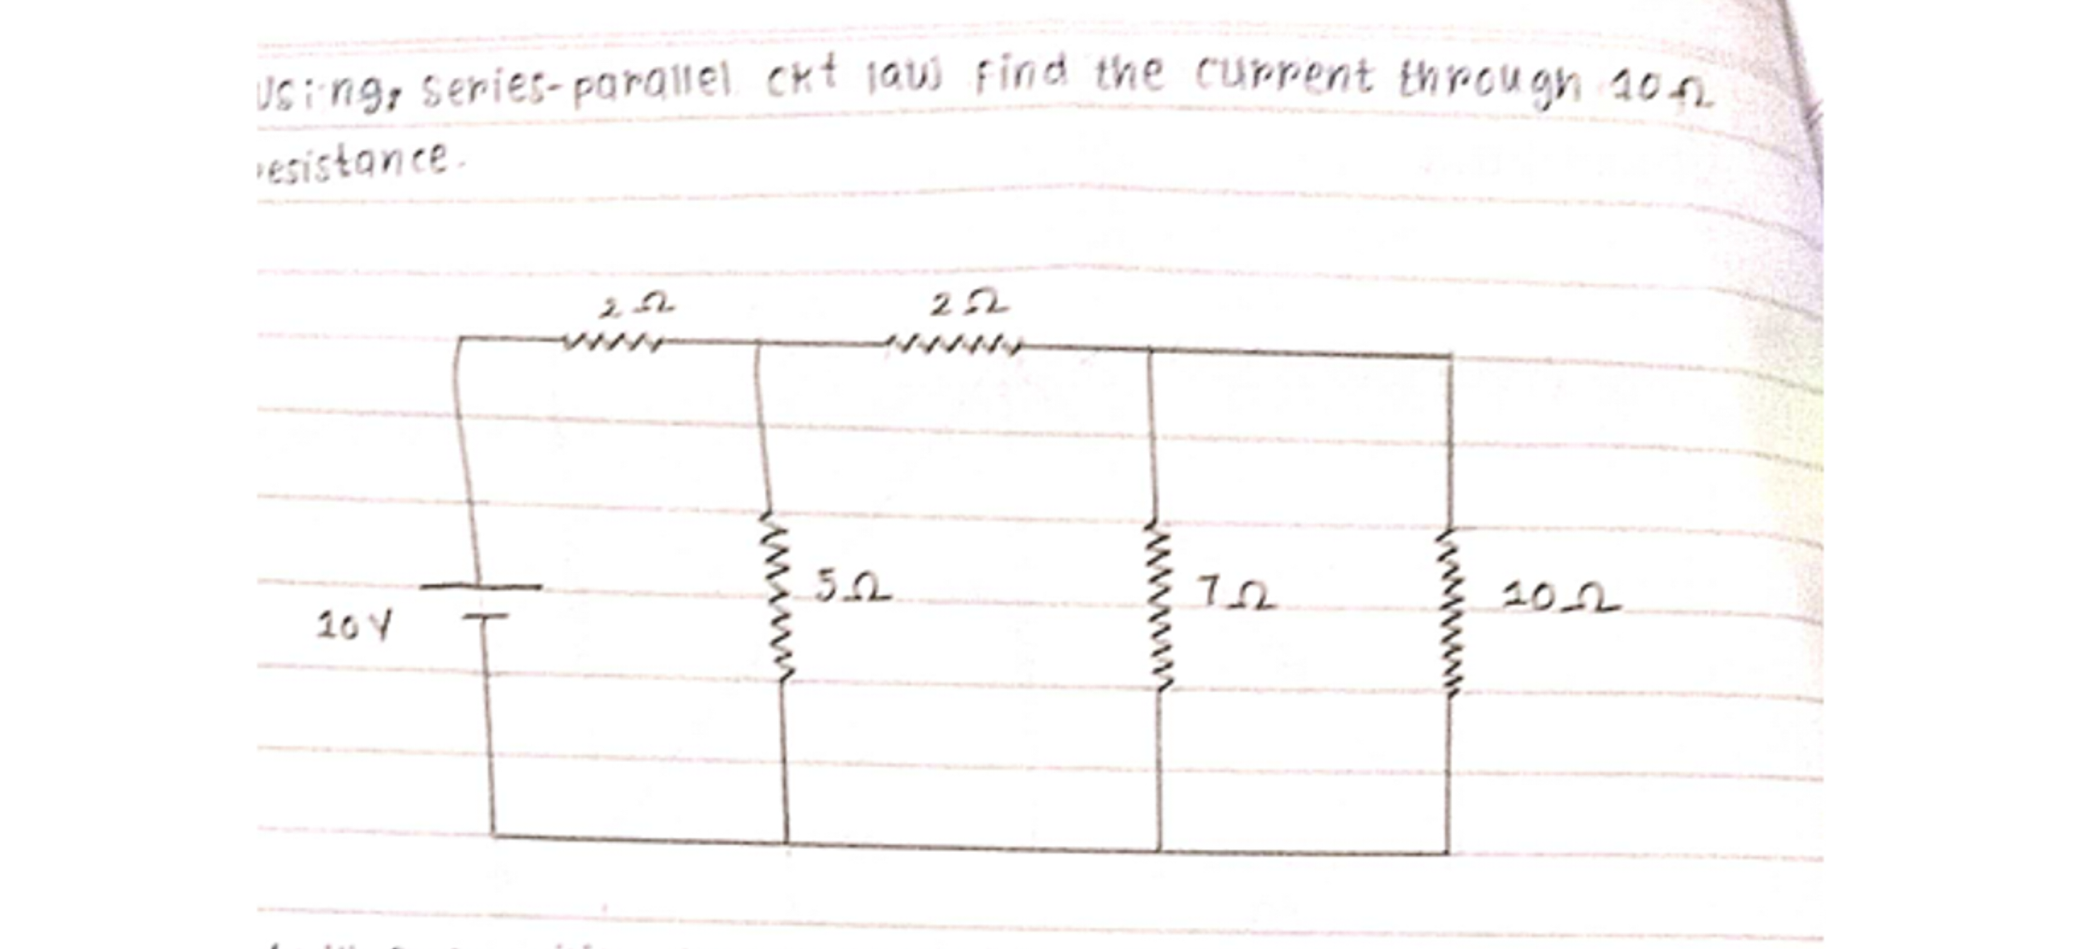 Using, series-parallel ckt law find the current through 10Ω
resistance.
2Ω 2Ω
5Ω 7Ω 10Ω
10V